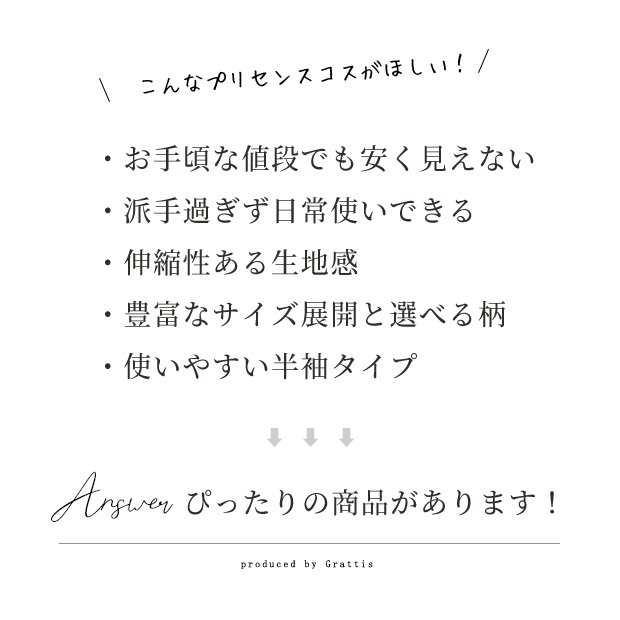 \ こんなプリセンスコスがほしい！ /
・お手頃な値段でも安く見えない
・派手過ぎず日常使いできる
・伸縮性ある生地感
・豊富なサイズ展開と選べる柄
・使いやすい半袖タイプ
Answer ぴったりの商品があります！
produced by Grattis